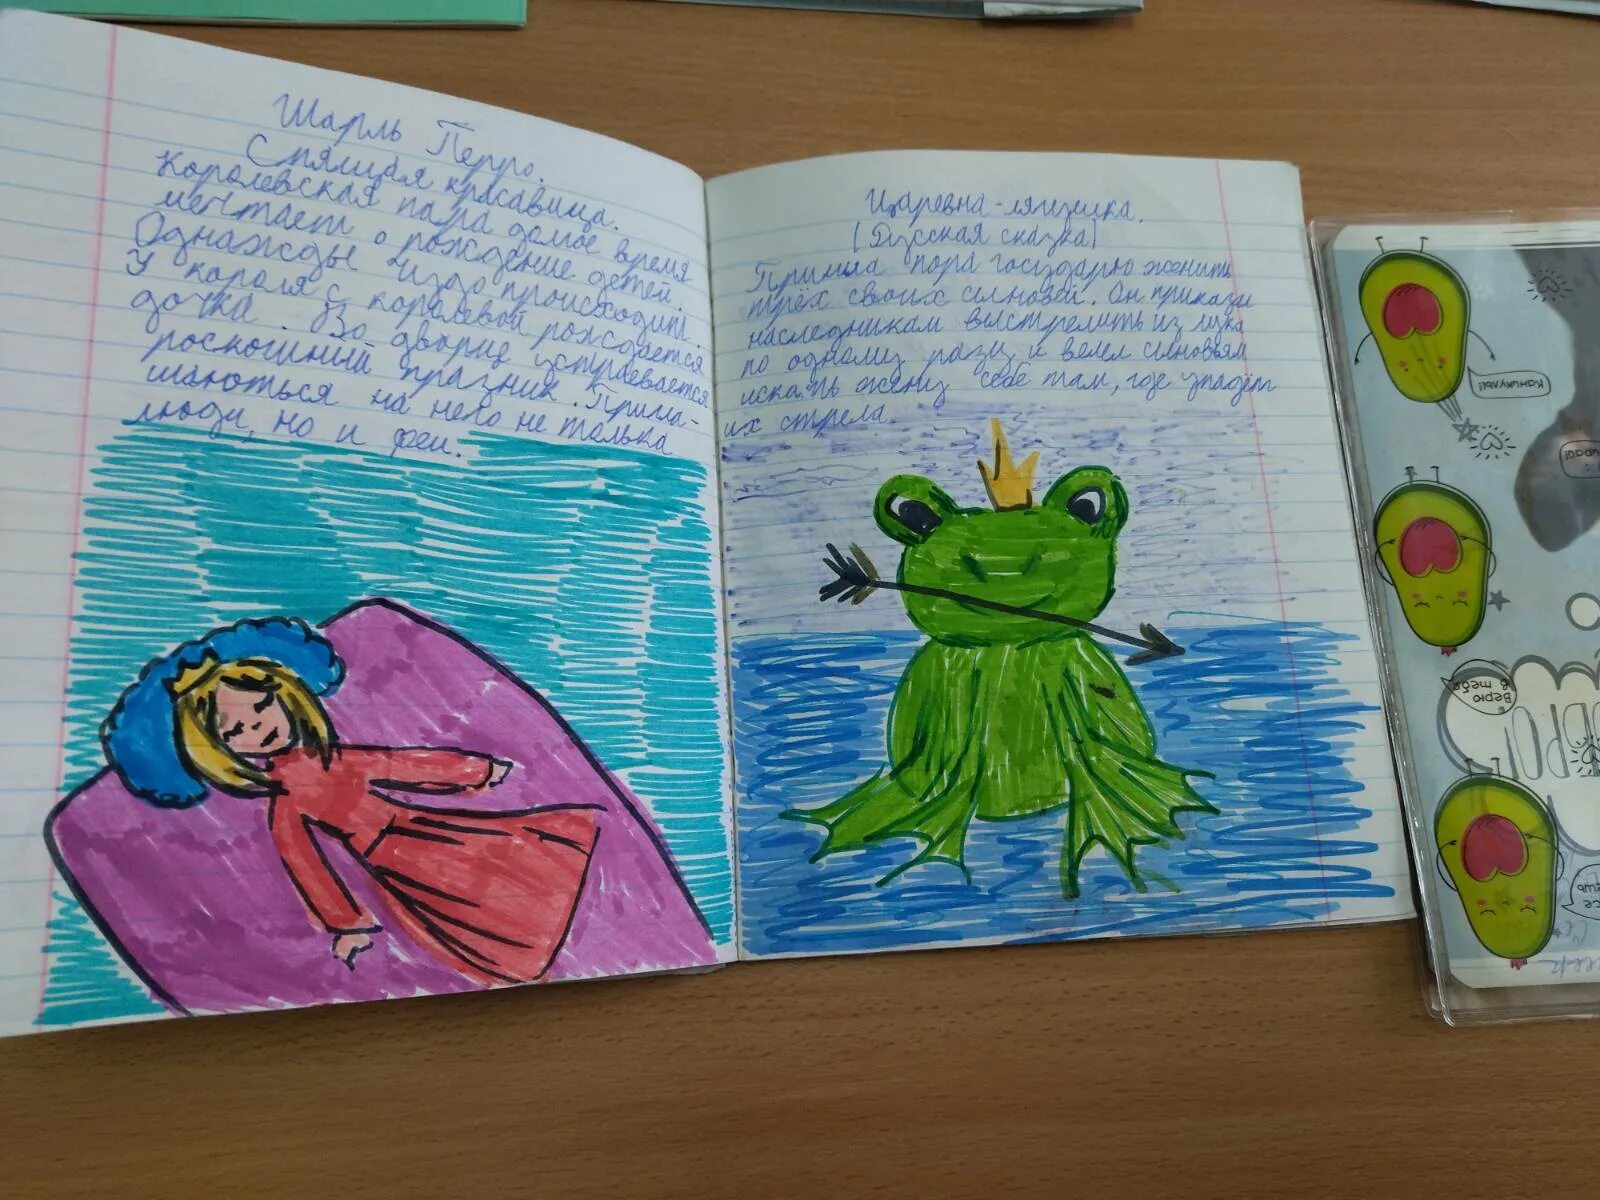 Шарль Перро.
Спящая красавица.
Королевская пара долгое время
мечтает о рождение детей.
Однажды чудо происходит.
У короля с королевой рождается
дочка. Во дворце устраевается
роскошный праздник. Пригла-
шаються на него не только
люди, но и феи.
Царевна-лягушка.
(Русская сказка)
Пришла пора государю женить
трёх своих сыновей. Он приказал
наследникам выстрелить из лука
по одному разу и велел сыновьям
искать жену себе там, где упадёт
их стрела.
Каникулы!
Верю
в тебя